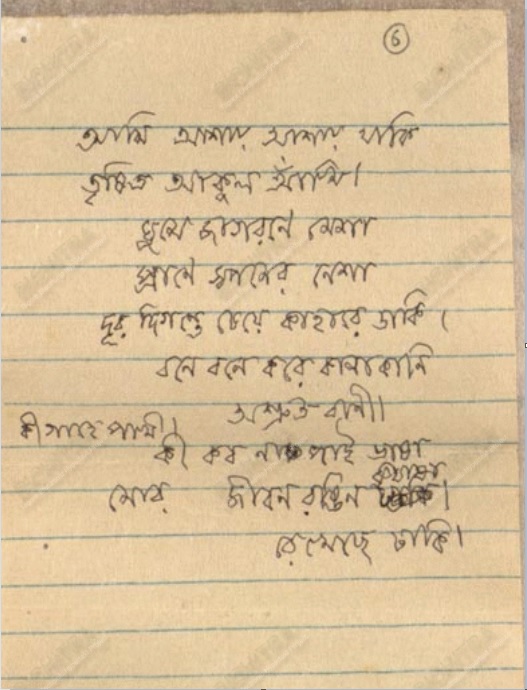 ৬
আমি আশায় আশায় থাকি
তৃষিত আকুল আঁখি।
ঘুমে জাগরণে মেশা
প্রাণে স্বপনের নেশা
দূর দিগন্তে চেয়ে কাহারে ডাকি।
বনে বনে করে কানাকানি
অশ্রুত বাণী।
কী গাহে পাখী।
কী কব না পাই ভাষা
মোর জীবন রঙিন কুয়াশা
রেখেছে ঢাকি।